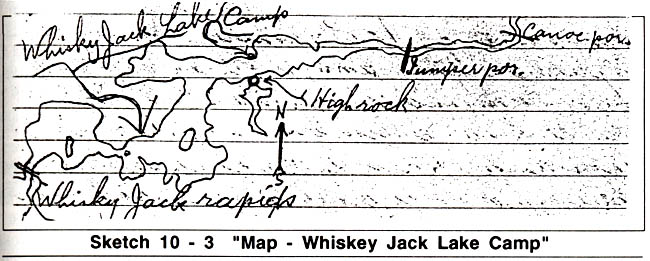 Whisky Jack Lake Camp
Canoe por.
Jumper por.
High rock
N
S
Whisky Jack rapids
Sketch 10 - 3 "Map - Whiskey Jack Lake Camp"